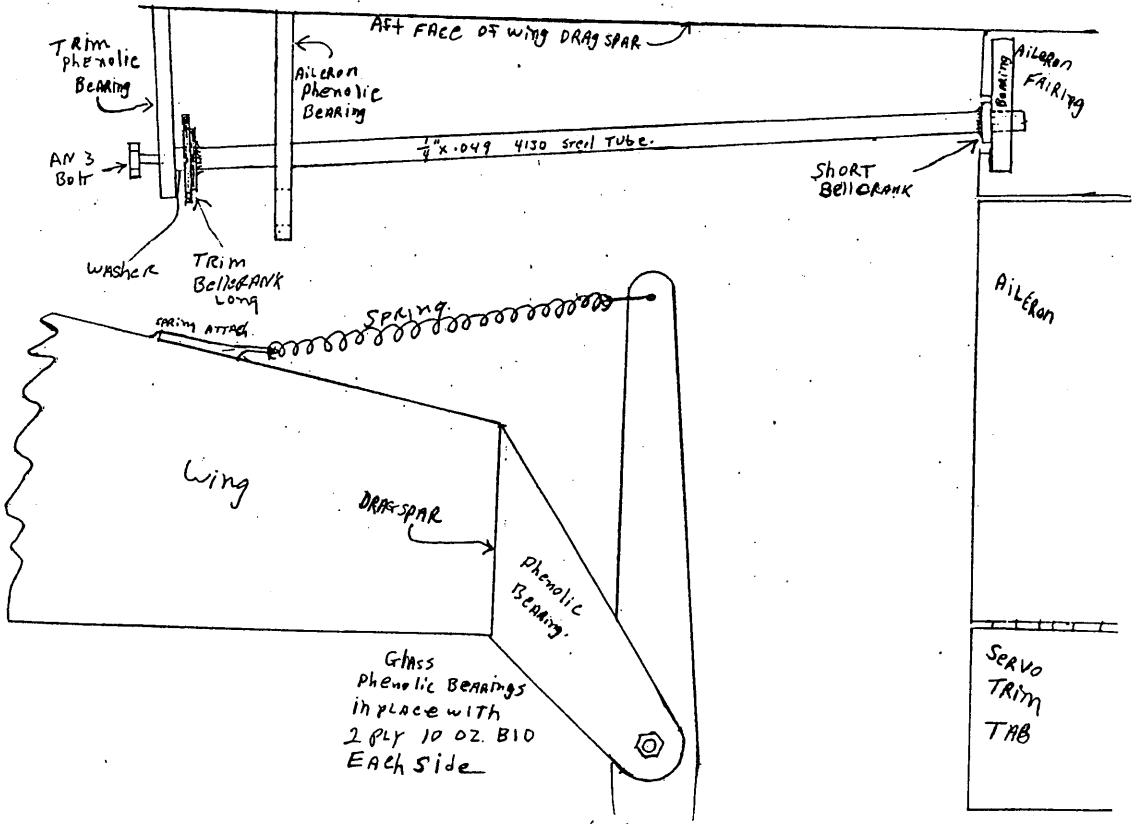 Aft Face of wing DRAG SPAR
TRim
phenolic
BEARing
AiLERon
phenolic
BEARing
BEARing
AiLERon
FAIRing
1/4" x .049 4130 Steel Tube.
AN 3
Bolt
SHORT
BellCRANK
WASHER
TRim
BellCRANK
Long
SPRING ATTACH
SPRing
AiLERon
Wing
DRAGSPAR
phenolic
BEARing
GlASS
Phenolic BEARings
in place with
2 PLY 10 OZ. BID
EACh Side
SERVO
TRim
TAB